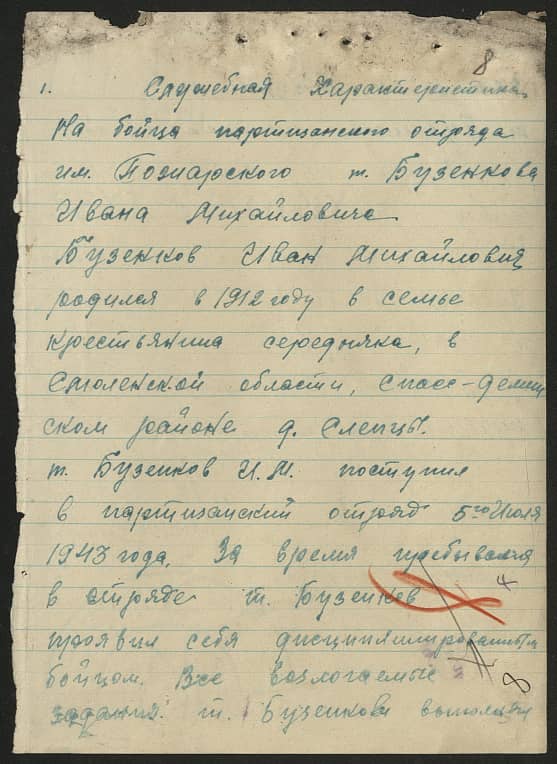 8
1. Служебная Характеристика
На бойца партизанского отряда
им. Пожарского т. Бузенкова
Ивана Михайловича
Бузенков Иван Михайлович
родился в 1912 году в семье
крестьянина середняка, в
Смоленской области, Спасс-Демен
ском районе д. Слепцы.
т. Бузенков И.М. поступил
в партизанский отряд 5го Июля
1943 года, За время пребывания
4
в отряде т. Бузенков
проявил себя дисциплинированным
бойцом. Все возлогаемые
8
задания т. Бузенков выполнял